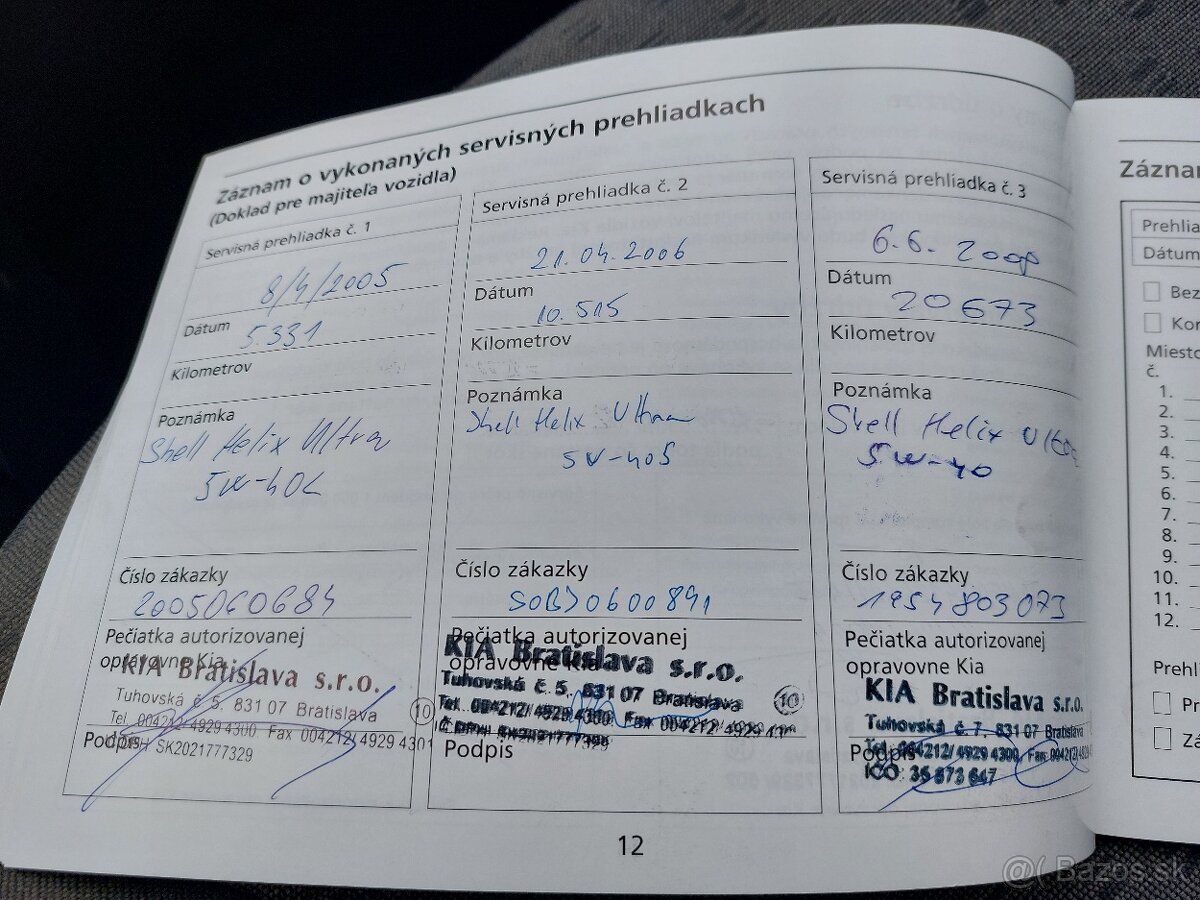 Záznam o vykonaných servisných prehliadkach
(Doklad pre majiteľa vozidla)
Servisná prehliadka č. 1
8/4/2005
Dátum
5.331
Kilometrov
Poznámka
Shell Helix Ultra
5W-40L
Číslo zákazky
2005060684
Pečiatka autorizovanej
opravovne Kia
KIA Bratislava s.r.o.
Tuhovská č. 5, 831 07 Bratislava
Tel. 004212/ 4929 4300 Fax 004212/ 4929 4301
10
Podpis
IČ DPH SK2021777329
Servisná prehliadka č. 2
21.04.2006
Dátum
10.515
Kilometrov
Poznámka
Shell Helix Ultra
5W-40S
Číslo zákazky
Pečiatka autorizovanej
opravovne Kia
KIA Bratislava s.r.o.
Tuhovská č. 5, 831 07 Bratislava
Tel. 004212/ 4929 4300 Fax 004212/ 4929
10
Podpis
Servisná prehliadka č. 3
6.6.
Dátum
20673
Kilometrov
Poznámka
Shell Helix
5W-40
Číslo zákazky
1954803073
Pečiatka autorizovanej
opravovne Kia
KIA Bratislava s.r.o.
Tuhovská č. 7, 831 07 Bratislava
Tel. 004212/ 4929 4300, Fax
Podpis
IČO 35 873 647
12
Prehlia
Dátum
Bez
Kor
Miesto
č.
1.
2.
3.
4.
5.
6.
7.
8.
9.
10.
11.
12.
Prehl
Pr
Zá
Bazos.sk